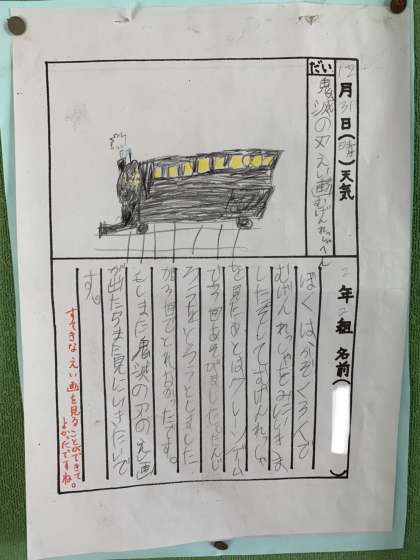 12月31日(晴)天気 2年2組 名前( )
だい
鬼滅の刃 えい画むげんれっしゃへん
ぼくは、かぞく3人で
むげんれっしゃをみにいきま
した。そしてむげんれっしゃ
を見たあとはクレーンゲーム
で 回あそびました。たんじ
ろうをとろうとしました
が 回 とれなかったです。
もしまた鬼滅の刃のえい画
が出たらまた見にいきたいで
す。
すてきな えい画を見ることができて
よかったですね。